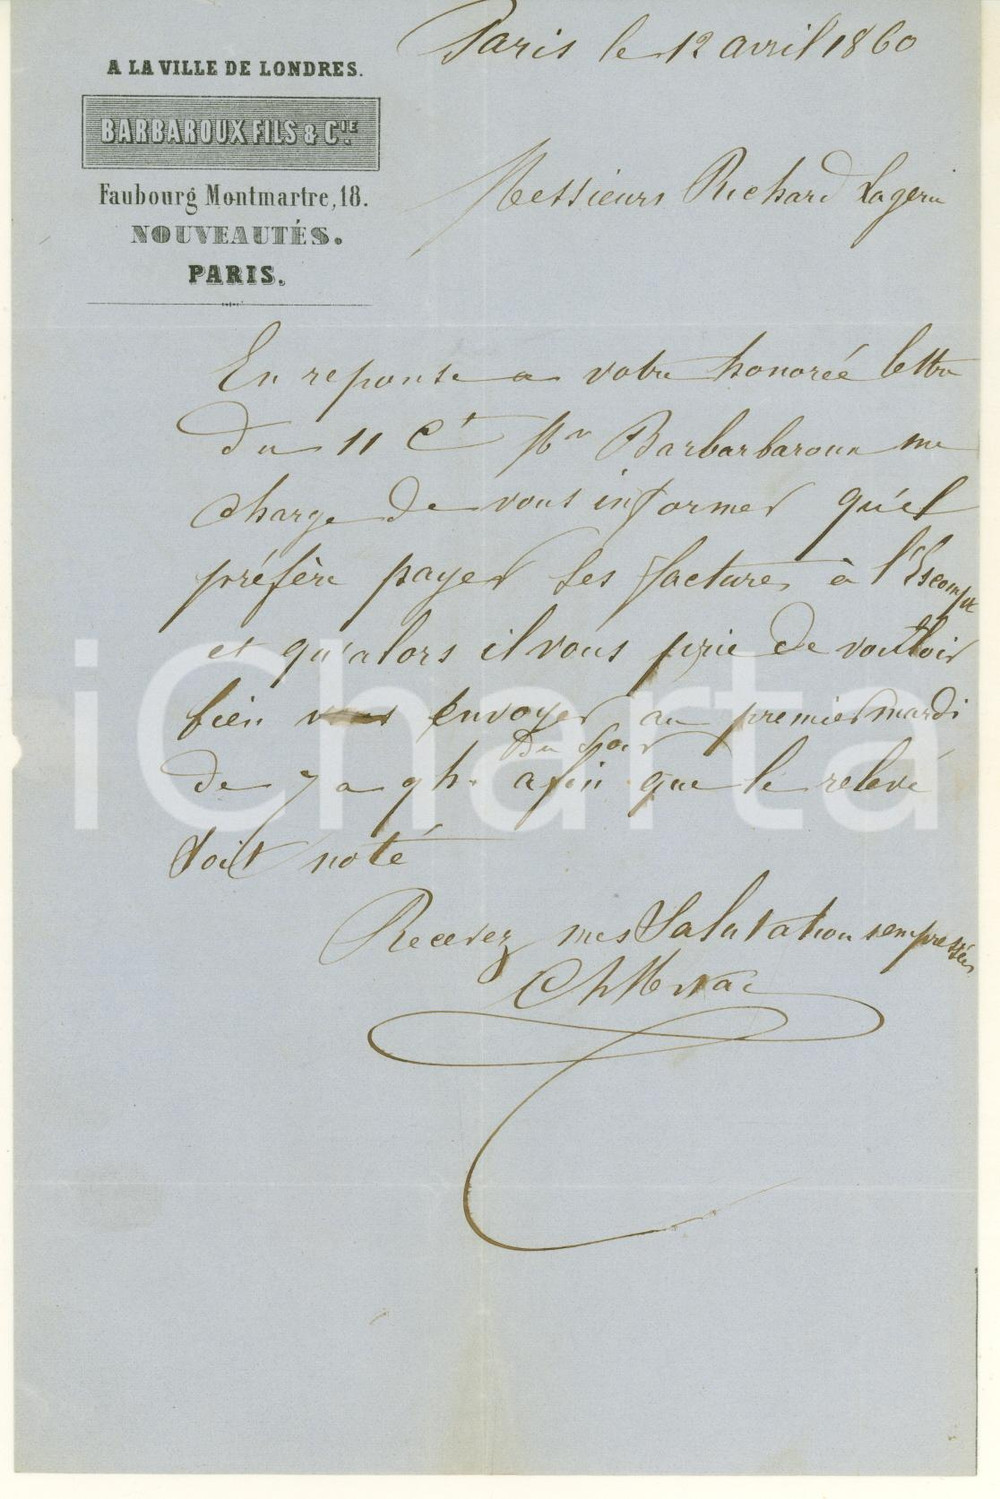 Paris le 12 avril 1860
A LA VILLE DE LONDRES.
BARBAROUX FILS & CIE.
Faubourg Montmartre, 18.
NOUVEAUTÉS.
PARIS.
Messieurs Richard
En reponse a votre honorée lettre
du 11 Ct Mr Barbarbaroux me
charge de vous informer qu'il
préfère payer ses factures à l'Escompte
et qu'alors il vous prie de vouloir
bien vous envoyer au premier mardi
du soir
de 7 a 9 h. afin que le relevé
soit noté
Recevez mes Salutations empressées
iCharta